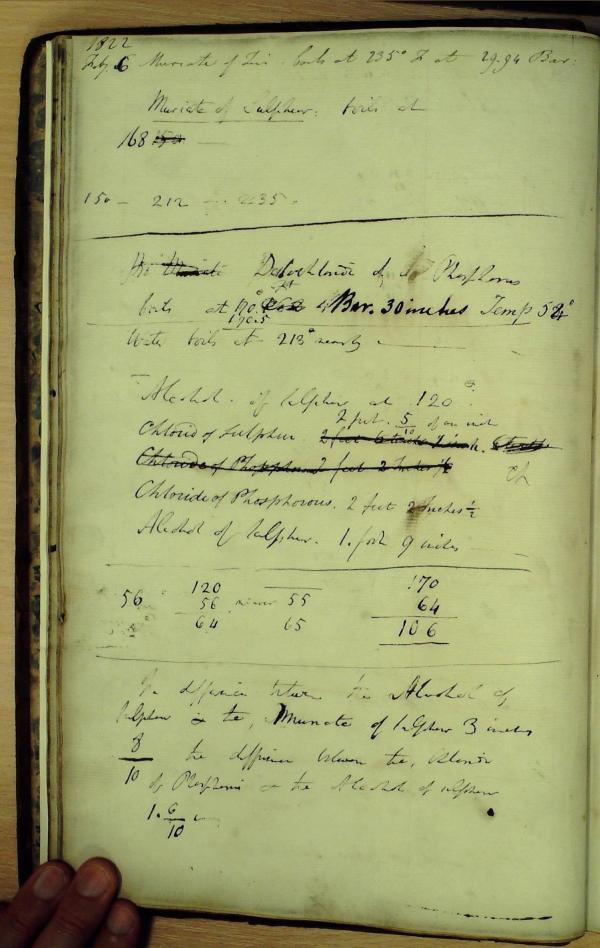 1822
Feby 6 Muriate of Tin. boils at 235° F at 29.94 Bar:
Muriate of Sulphur. boils at
168
150 — 212 — 235.
Muriate of Phosphorus
boils at 170. Bar. 30 inches Temp 52°
170.5
Water boils at 213° nearly
Alcohol of Sulphur at 120°
2 feet. 5/10 of an inch
Chlorid of Sulphur. 2 feet 6 inch.
Chloride of Phosphorus 2 feet 2 Inches ½
Ch
Chloride of Phosphorous. 2 feet 2 Inches ½
Alcohol of Sulphur. 1. foot 9 inches
120 170
56 56 55 64
64 65 106
The difference between the Alcohol of
Sulphur & the Muriate of Sulphur 3 inches
8/10 the difference between the
of Phosphorus & the Alcohol of Sulphur
1. 6/10